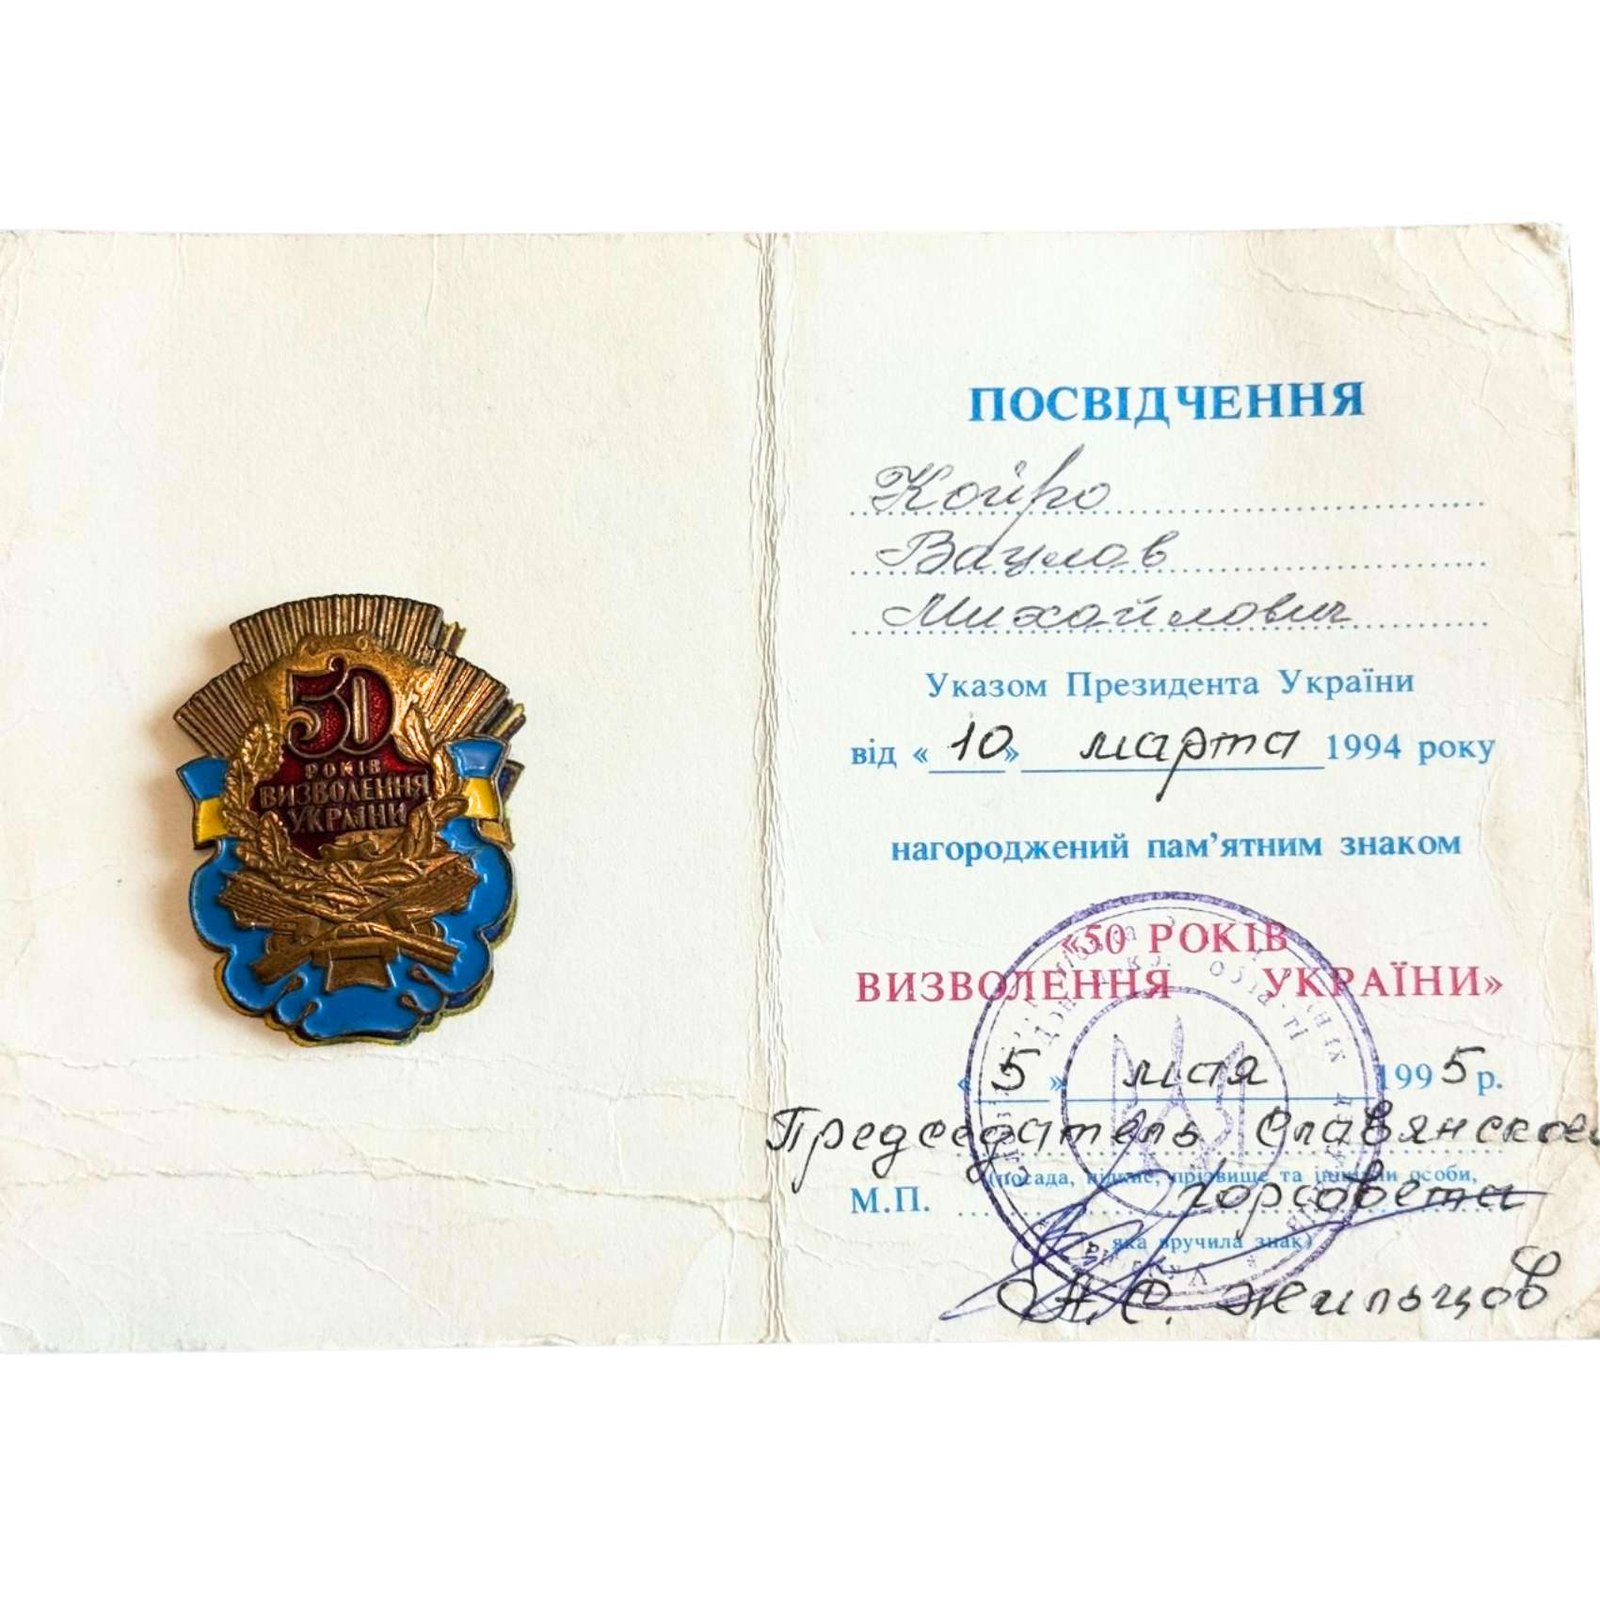 50
РОКІВ
ВИЗВОЛЕННЯ
УКРАЇНИ
ПОСВІДЧЕННЯ
Койро
Вацлав
Михайлович
Указом Президента України
від «10» марта 1994 року
нагороджений пам’ятним знаком
«50 РОКІВ
ВИЗВОЛЕННЯ УКРАЇНИ»
«5» мая 1995 р.
Председатель Славянского
(посада, підпис, прізвище та ініціали особи,
М.П. горсовета
яка вручила знак)
А.С. Жильцов